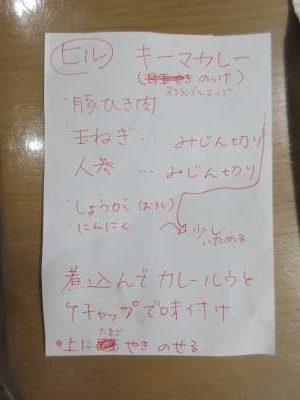 ヒル キーマカレー
(目玉やき のっけ)
スクランブルエッグ
豚ひき肉
玉ねぎ… みじん切り
人参 … みじん切り
しょうが (おろし)
にんにく
少し
いためる
煮込んで カレールウと
ケチャップで味付け
たまご
上に やき のせる